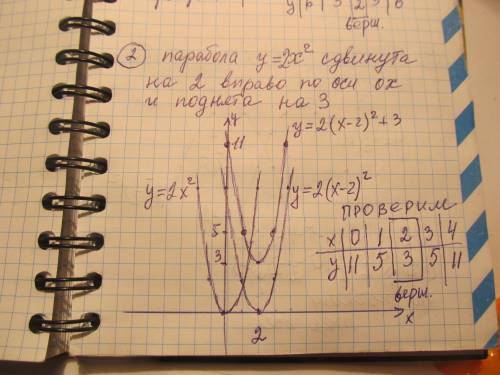 у 6 3 2 3 6
верш.
2 парабола y=2x² сдвинута
на 2 вправо по оси ох
и поднята на 3
y
11
y=2(x-2)²+3
y=2x²
y=2(x-2)²
проверим
5
x 0 1 2 3 4
3
y 11 5 3 5 11
верш.
x
2